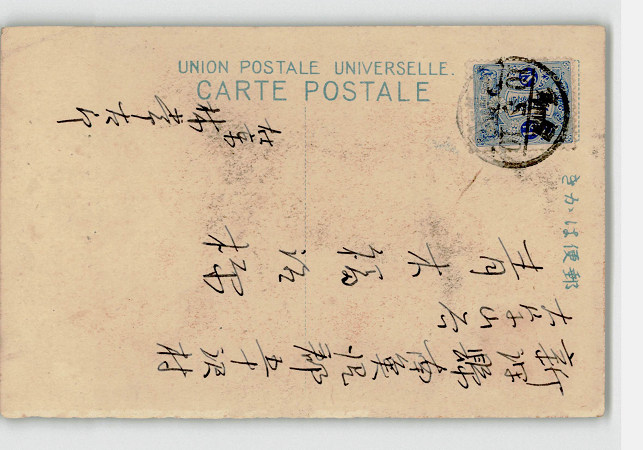 UNION POSTALE UNIVERSELLE.
CARTE POSTALE
きかは便郵
新潟縣南魚沼郡五十沢村
大字山谷
青木福治様